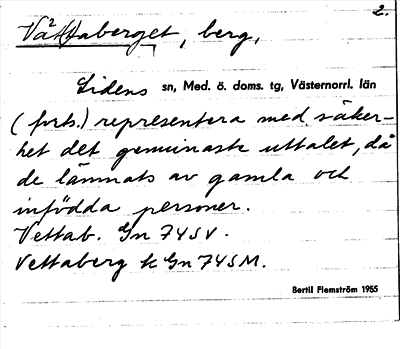 2.
Vättaberget, berg,
Lidens sn, Med. ö. doms. tg, Västernorrl. län
(forts.) representera med säker-
het det genuinaste uttalet, då
de lämnats av gamla och
infödda personer.
Vettab. Gn 745V.
Vettaberg k Gn 745M.
Bertil Flemström 1955